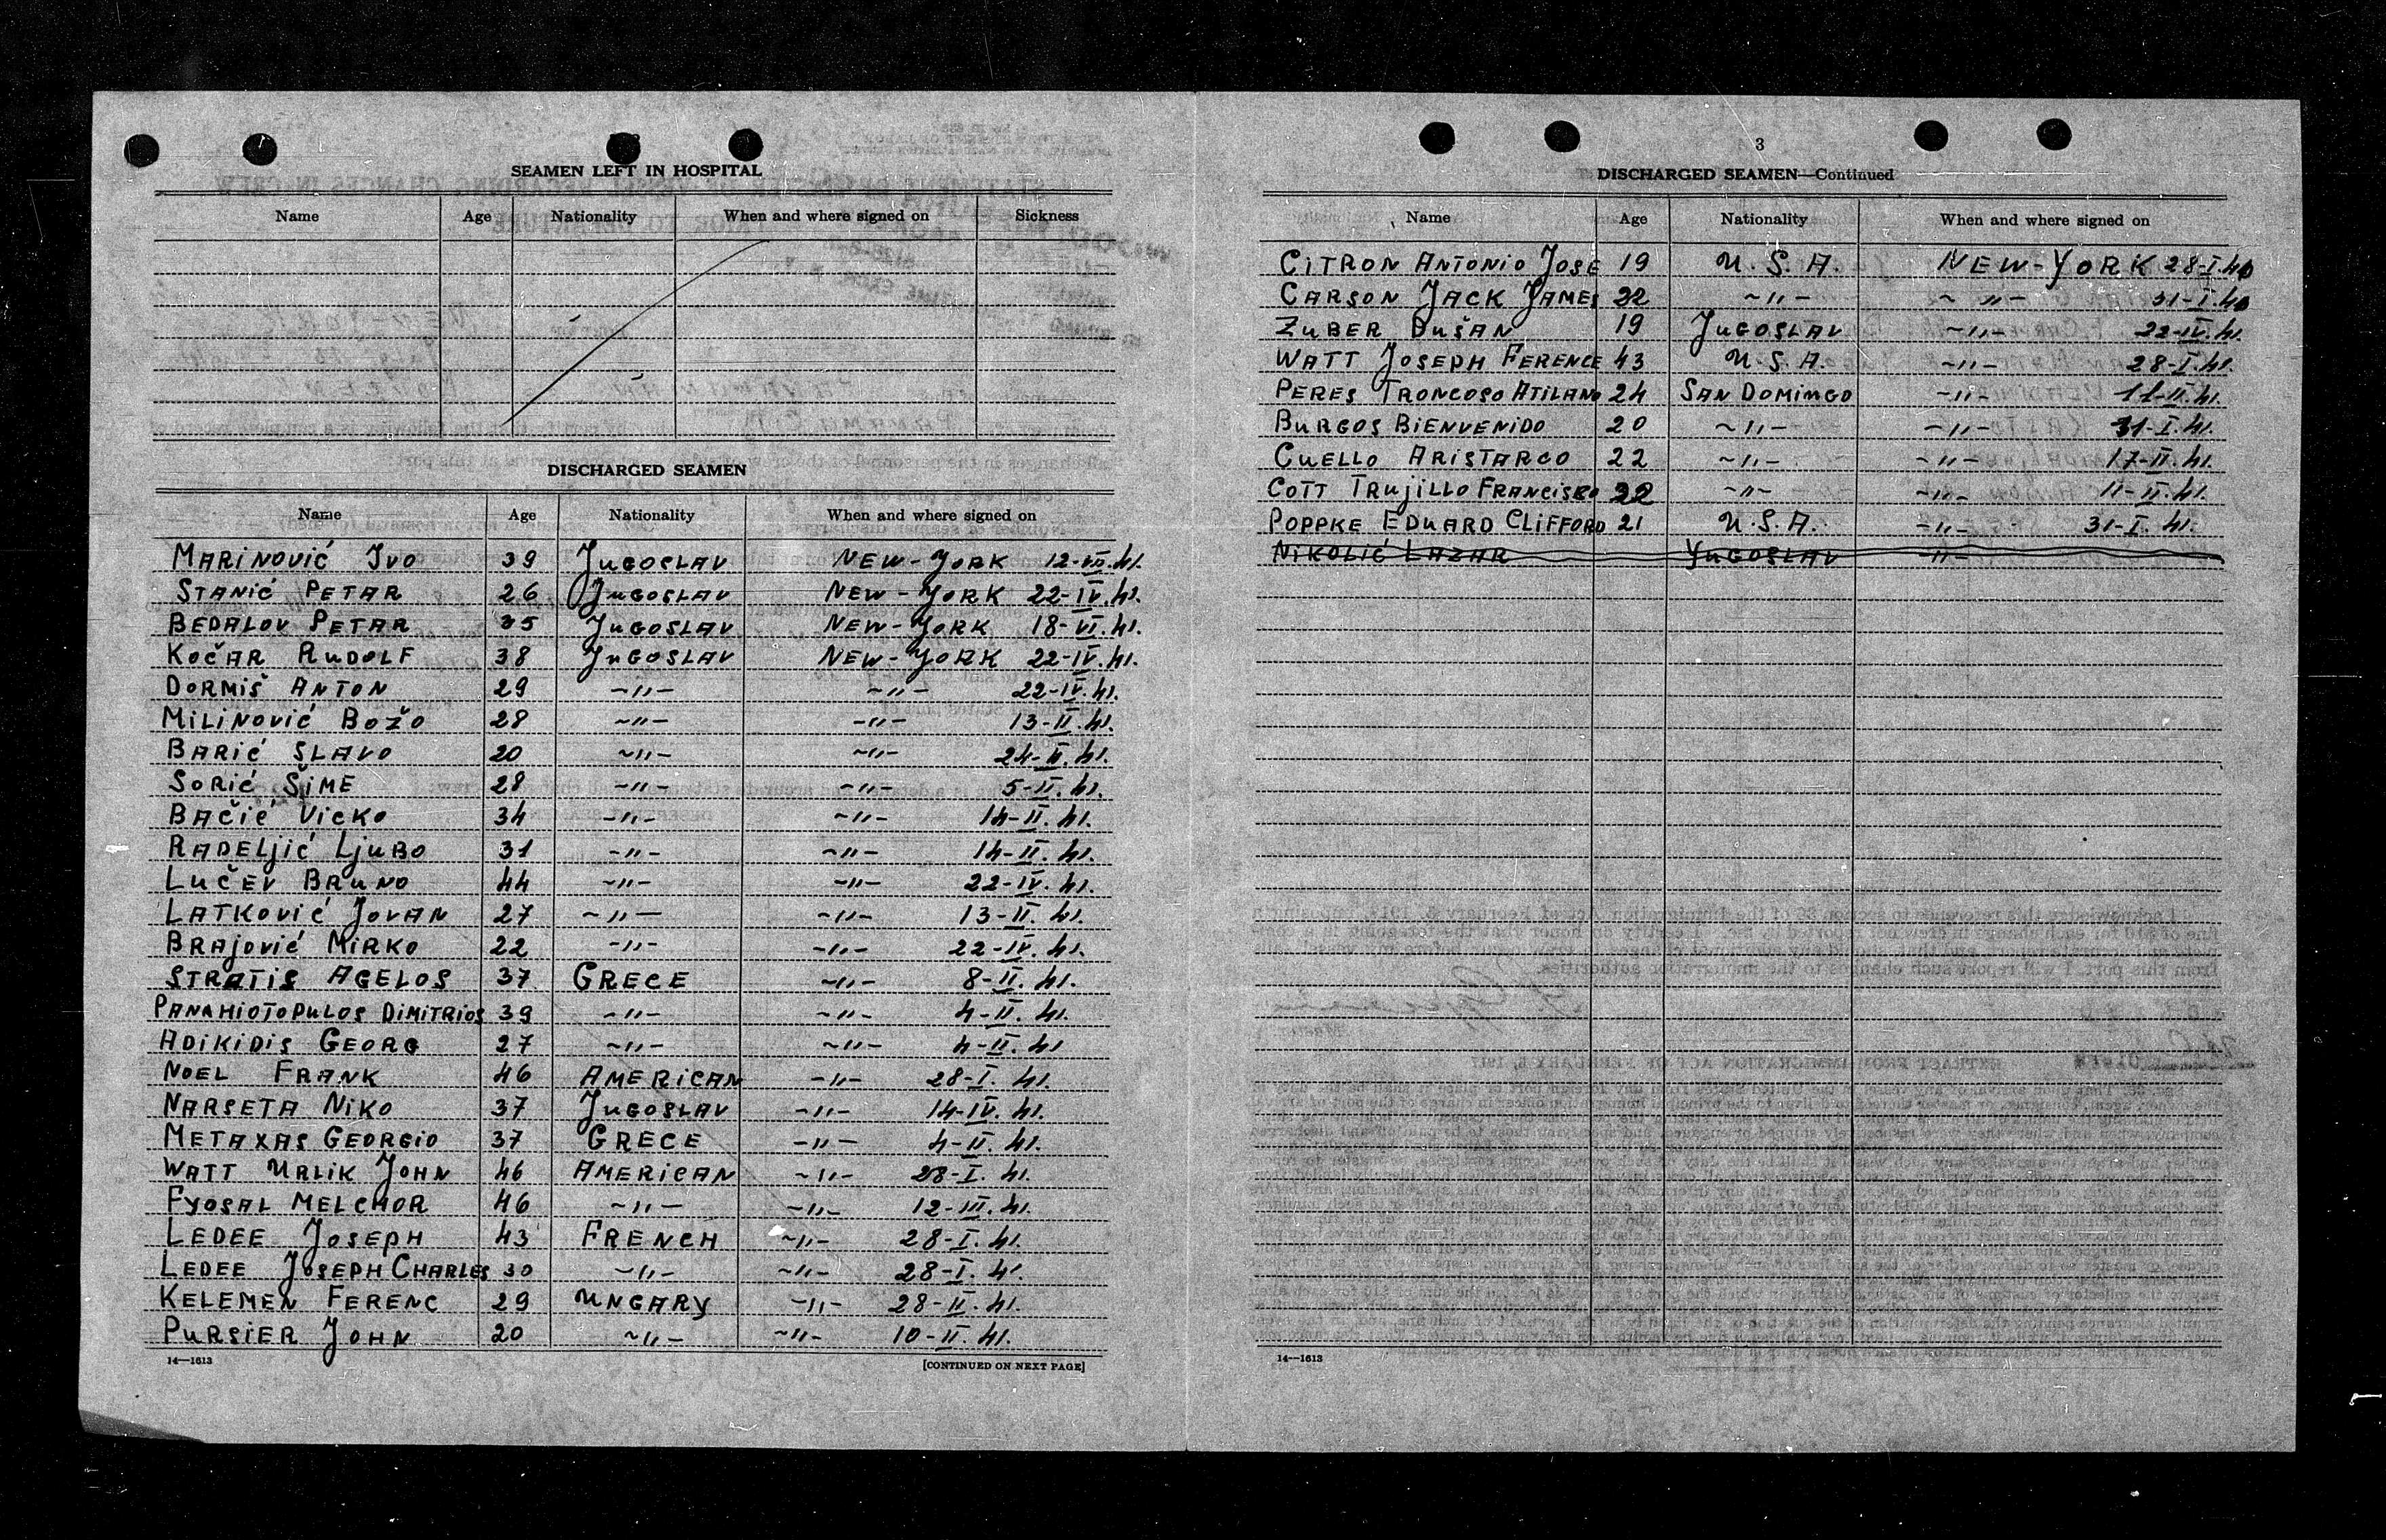 SEAMEN LEFT IN HOSPITAL
Name Age Nationality When and where signed on Sickness
DISCHARGED SEAMEN
Name Age Nationality When and where signed on
MARINOVIĆ IVO 39 JUGOSLAV NEW-YORK 12-VII.41.
STANIĆ PETAR 26 JUGOSLAV NEW-YORK 22-IV.41.
BEDALOV PETAR 35 JUGOSLAV NEW-YORK 18-VI.41.
KOČAR RUDOLF 38 JUGOSLAV NEW-YORK 22-IV.41.
DORMIŠ ANTON 29 -〃- -〃- 22-IV.41.
MILINOVIĆ BOŽO 28 -〃- -〃- 13-II.41.
BARIĆ SLAVO 20 -〃- -〃- 24-II.41.
SORIĆ ŠIME 28 -〃- -〃- 5-II.41.
BAČIĆ VICKO 34 -〃- -〃- 14-II.41.
RADELJIĆ LJUBO 31 -〃- -〃- 14-II.41.
LUČEV BRUNO 44 -〃- -〃- 22-IV.41.
LATKOVIĆ JOVAN 27 -〃- -〃- 13-II.41.
BRAJOVIĆ MIRKO 22 -〃- -〃- 22-IV.41.
STRATIS AGELOS 37 GRECE -〃- 8-II.41.
PANAHIOTOPULOS DIMITRIOS 39 -〃- -〃- 4-II.41.
ADIKIDIS GEORG 27 -〃- -〃- 4-II.41
NOEL FRANK 46 AMERICAN -〃- 28-I.41.
NARSETA NIKO 37 JUGOSLAV -〃- 14-IV.41.
METAXAS GEORGIO 37 GRECE -〃- 4-II.41.
WATT URLIK JOHN 46 AMERICAN -〃- 28-I.41.
FYOSAL MELCHOR 46 -〃- -〃- 12-III.41.
LEDEE JOSEPH 43 FRENCH -〃- 28-I.41.
LEDEE JOSEPH CHARLES 30 -〃- -〃- 28-I.41.
KELEMEN FERENC 29 UNGARY -〃- 28-II.41.
PURSIER JOHN 20 -〃- -〃- 10-II.41.
14—1613 [CONTINUED ON NEXT PAGE]
3
DISCHARGED SEAMEN—Continued
Name Age Nationality When and where signed on
CITRON ANTONIO JOSE 19 U.S.A. NEW-YORK 28-I.41
CARSON JACK JAMES 22 -〃- -〃- 31-I.41
ZUBER DUŠAN 19 JUGOSLAV -〃- 22-IV.41.
WATT JOSEPH FERENCE 43 U.S.A. -〃- 28-I.41.
PERES TRONCOSO ATILANO 24 SAN DOMINGO -〃- 11-II.41.
BURGOS BIENVENIDO 20 -〃- -〃- 31-I.41.
CUELLO ARISTARCO 22 -〃- -〃- 17-II.41.
COTT TRUJILLO FRANCISKO 22 -〃- -〃- 11-II.41.
POPPKE EDUARD CLIFFORD 21 U.S.A. -〃- 31-I.41.
NIKOLIĆ LAZAR YUGOSLAV -〃-
14—1613